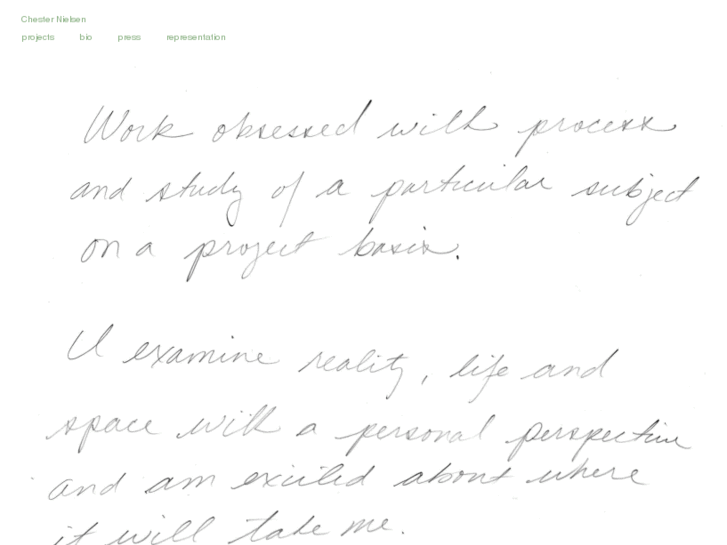 Chester Nielsen
projects bio press representation
Work obsessed with process
and study of a particular subject
on a project basis.
I examine reality, life and
space with a personal perspective
and am excited about where
it will take me.